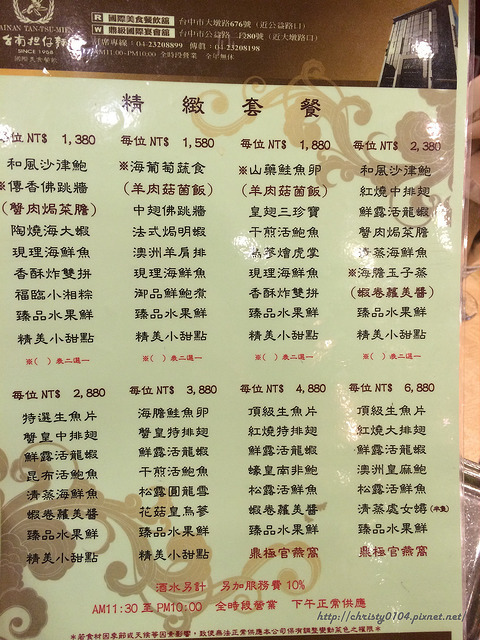 AINAN TAN-TSU-MIEN
台南担仔麵
SINCE 1968
國際美食餐飲
R 國際美食餐飲館 台中市大墩路676號（近公益路口）
W 鼎級國際宴會館 台中市公益路二段80號（近大墩路口）
訂席專線：04-23208899 傳真：04-23208198
AM11:00-PM10:00 全時段營業 全年無休
精緻套餐
每位 NT$ 1,380
和風沙律鮑
※傳香佛跳牆
(蟹肉焗菜膽)
陶燒海大蝦
現理海鮮魚
香酥炸雙拼
福臨小湘粽
臻品水果鮮
精美小甜點
※( ) 表二選一
每位 NT$ 1,580
※海葡萄蔬食
(羊肉菇菌飯)
中翅佛跳牆
法式焗明蝦
澳洲羊肩排
現理海鮮魚
御品鮮鮑煮
臻品水果鮮
精美小甜點
※( ) 表二選一
每位 NT$ 1,880
※山藥鮭魚卵
(羊肉菇菌飯)
皇翅三珍寶
干煎活鮑魚
烏蔘燴虎掌
現理海鮮魚
香酥炸雙拼
臻品水果鮮
精美小甜點
※( ) 表二選一
每位 NT$ 2,380
和風沙律鮑
紅燒中排翅
鮮露活龍蝦
蟹肉焗菜膽
清蒸海鮮魚
※海膽玉子蒸
(蝦卷蘿美醬)
臻品水果鮮
精美小甜點
※( ) 表二選一
每位 NT$ 2,880
特選生魚片
蟹皇中排翅
鮮露活龍蝦
昆布活鮑魚
清蒸海鮮魚
蝦卷蘿美醬
臻品水果鮮
精美小甜點
每位 NT$ 3,880
海膽鮭魚卵
蟹皇特排翅
鮮露活龍蝦
干煎活鮑魚
松露圓龍雪
花菇皇烏蔘
臻品水果鮮
精美小甜點
每位 NT$ 4,880
頂級生魚片
紅燒特排翅
鮮露活龍蝦
蠔皇南非鮑
松露活鮮魚
蝦卷蘿美醬
臻品水果鮮
鼎極官燕窩
每位 NT$ 6,880
頂級生魚片
紅燒大排翅
鮮露活龍蝦
澳洲皇麻鮑
松露活鮮魚
清蒸處女蟳(半隻)
臻品水果鮮
鼎極官燕窩
酒水另計 另加服務費 10%
AM11:30 至 PM10:00 全時段營業 下午正常供應
http://christy0104.pixnet.net
＊若食材因季節或天候等因素影響，致使無法正常供應本公司保有調整變動菜色之權限＊